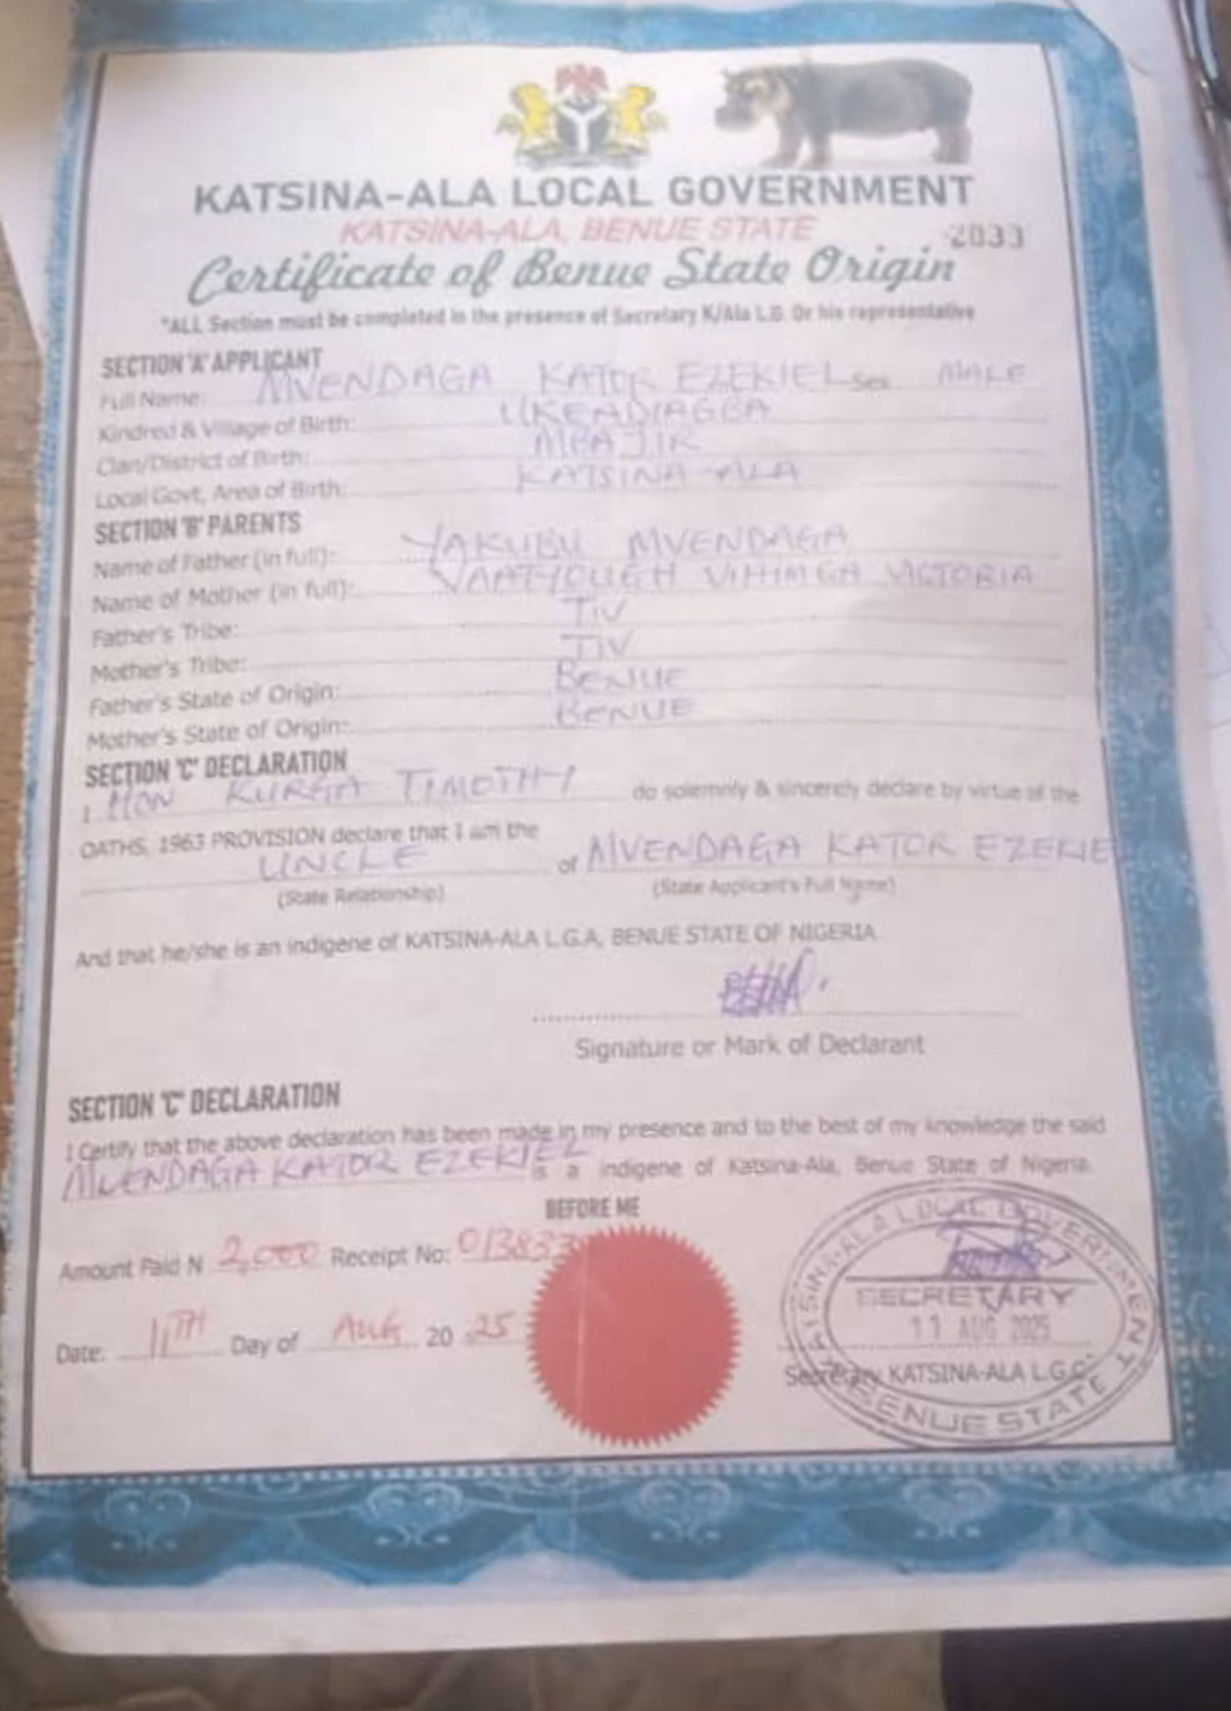 KATSINA-ALA LOCAL GOVERNMENT
KATSINA-ALA, BENUE STATE
2033
Certificate of Benue State Origin
*ALL Section must be completed in the presence of Secretary K/Ala L.G. Or his representative
SECTION 'A' APPLICANT
Full Name: MVENDAGA KATOR EZEKIEL Sex MALE
Kindred & Village of Birth: UKEADIAGBA
Clan/District of Birth: MBAJIR
Local Govt, Area of Birth: KATSINA ALA
SECTION 'B' PARENTS
Name of Father (in full): YAKUBU MVENDAGA
Name of Mother (in full): VIHIMGA VICTORIA
Father's Tribe: TIV
Mother's Tribe: TIV
Father's State of Origin: BENUE
Mother's State of Origin: BENUE
SECTION 'C' DECLARATION
I HON TIMOTHY do solemnly & sincerely declare by virtue of the
OATHS, 1963 PROVISION declare that I am the
UNCLE of MVENDAGA KATOR EZEKIE
(State Relationship) (State Applicant's Full Name)
And that he/she is an indigene of KATSINA-ALA L.G.A, BENUE STATE OF NIGERIA
Signature or Mark of Declarant
SECTION 'C' DECLARATION
I Certify that the above declaration has been made in my presence and to the best of my knowledge the said
MVENDAGA KATOR EZEKIEL is a indigene of Katsina-Ala, Benue State of Nigeria
BEFORE ME
Amount Paid N 2,000 Receipt No: 013833
Date: 11TH Day of AUG 20 25
KATSINA-ALA LOCAL GOVERNMENT
SECRETARY
11 AUG 2025
Secretary KATSINA-ALA L.G.C
BENUE STATE